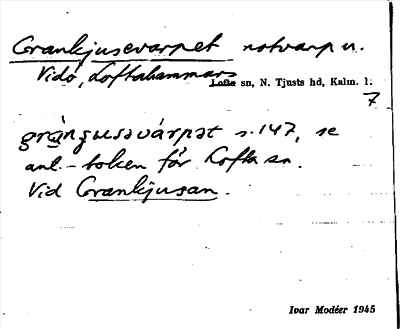 Grankjusevarpet notvarp u.
Vidö, Loftahammars
Lofta sn, N. Tjusts hd, Kalm. l.
7
grànȷusavárpat s. 147, se
ant.-boken för Lofta sn.
Vid Grankjusan.
Ivar Modéer 1945